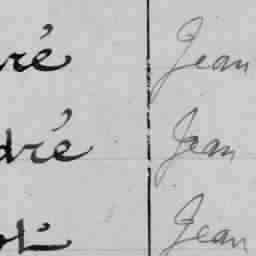 ré Jean
dré Jean
ot Jean